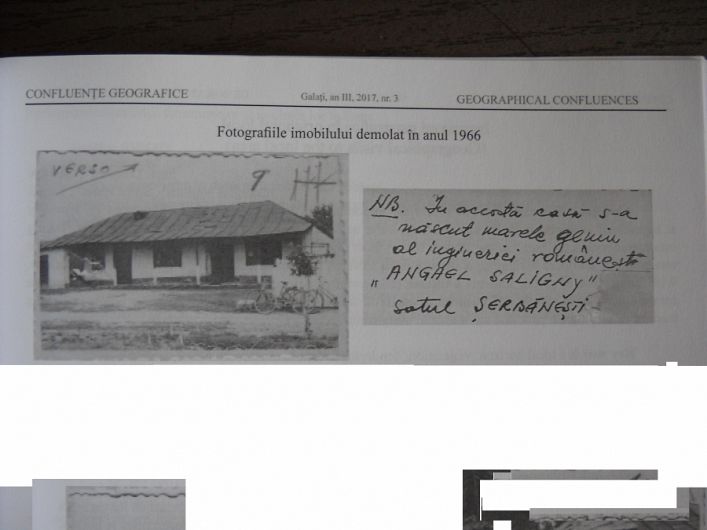 CONFLUENȚE GEOGRAFICE
Galați, an III, 2017, nr. 3
GEOGRAPHICAL CONFLUENCES
Fotografiile imobilului demolat în anul 1966
VERSO
9
NB. În accostă casă s-a
născut marele geniu
al ingineriei românești
„ANGHEL SALIGNY"
satul ȘERBĂNEȘTI